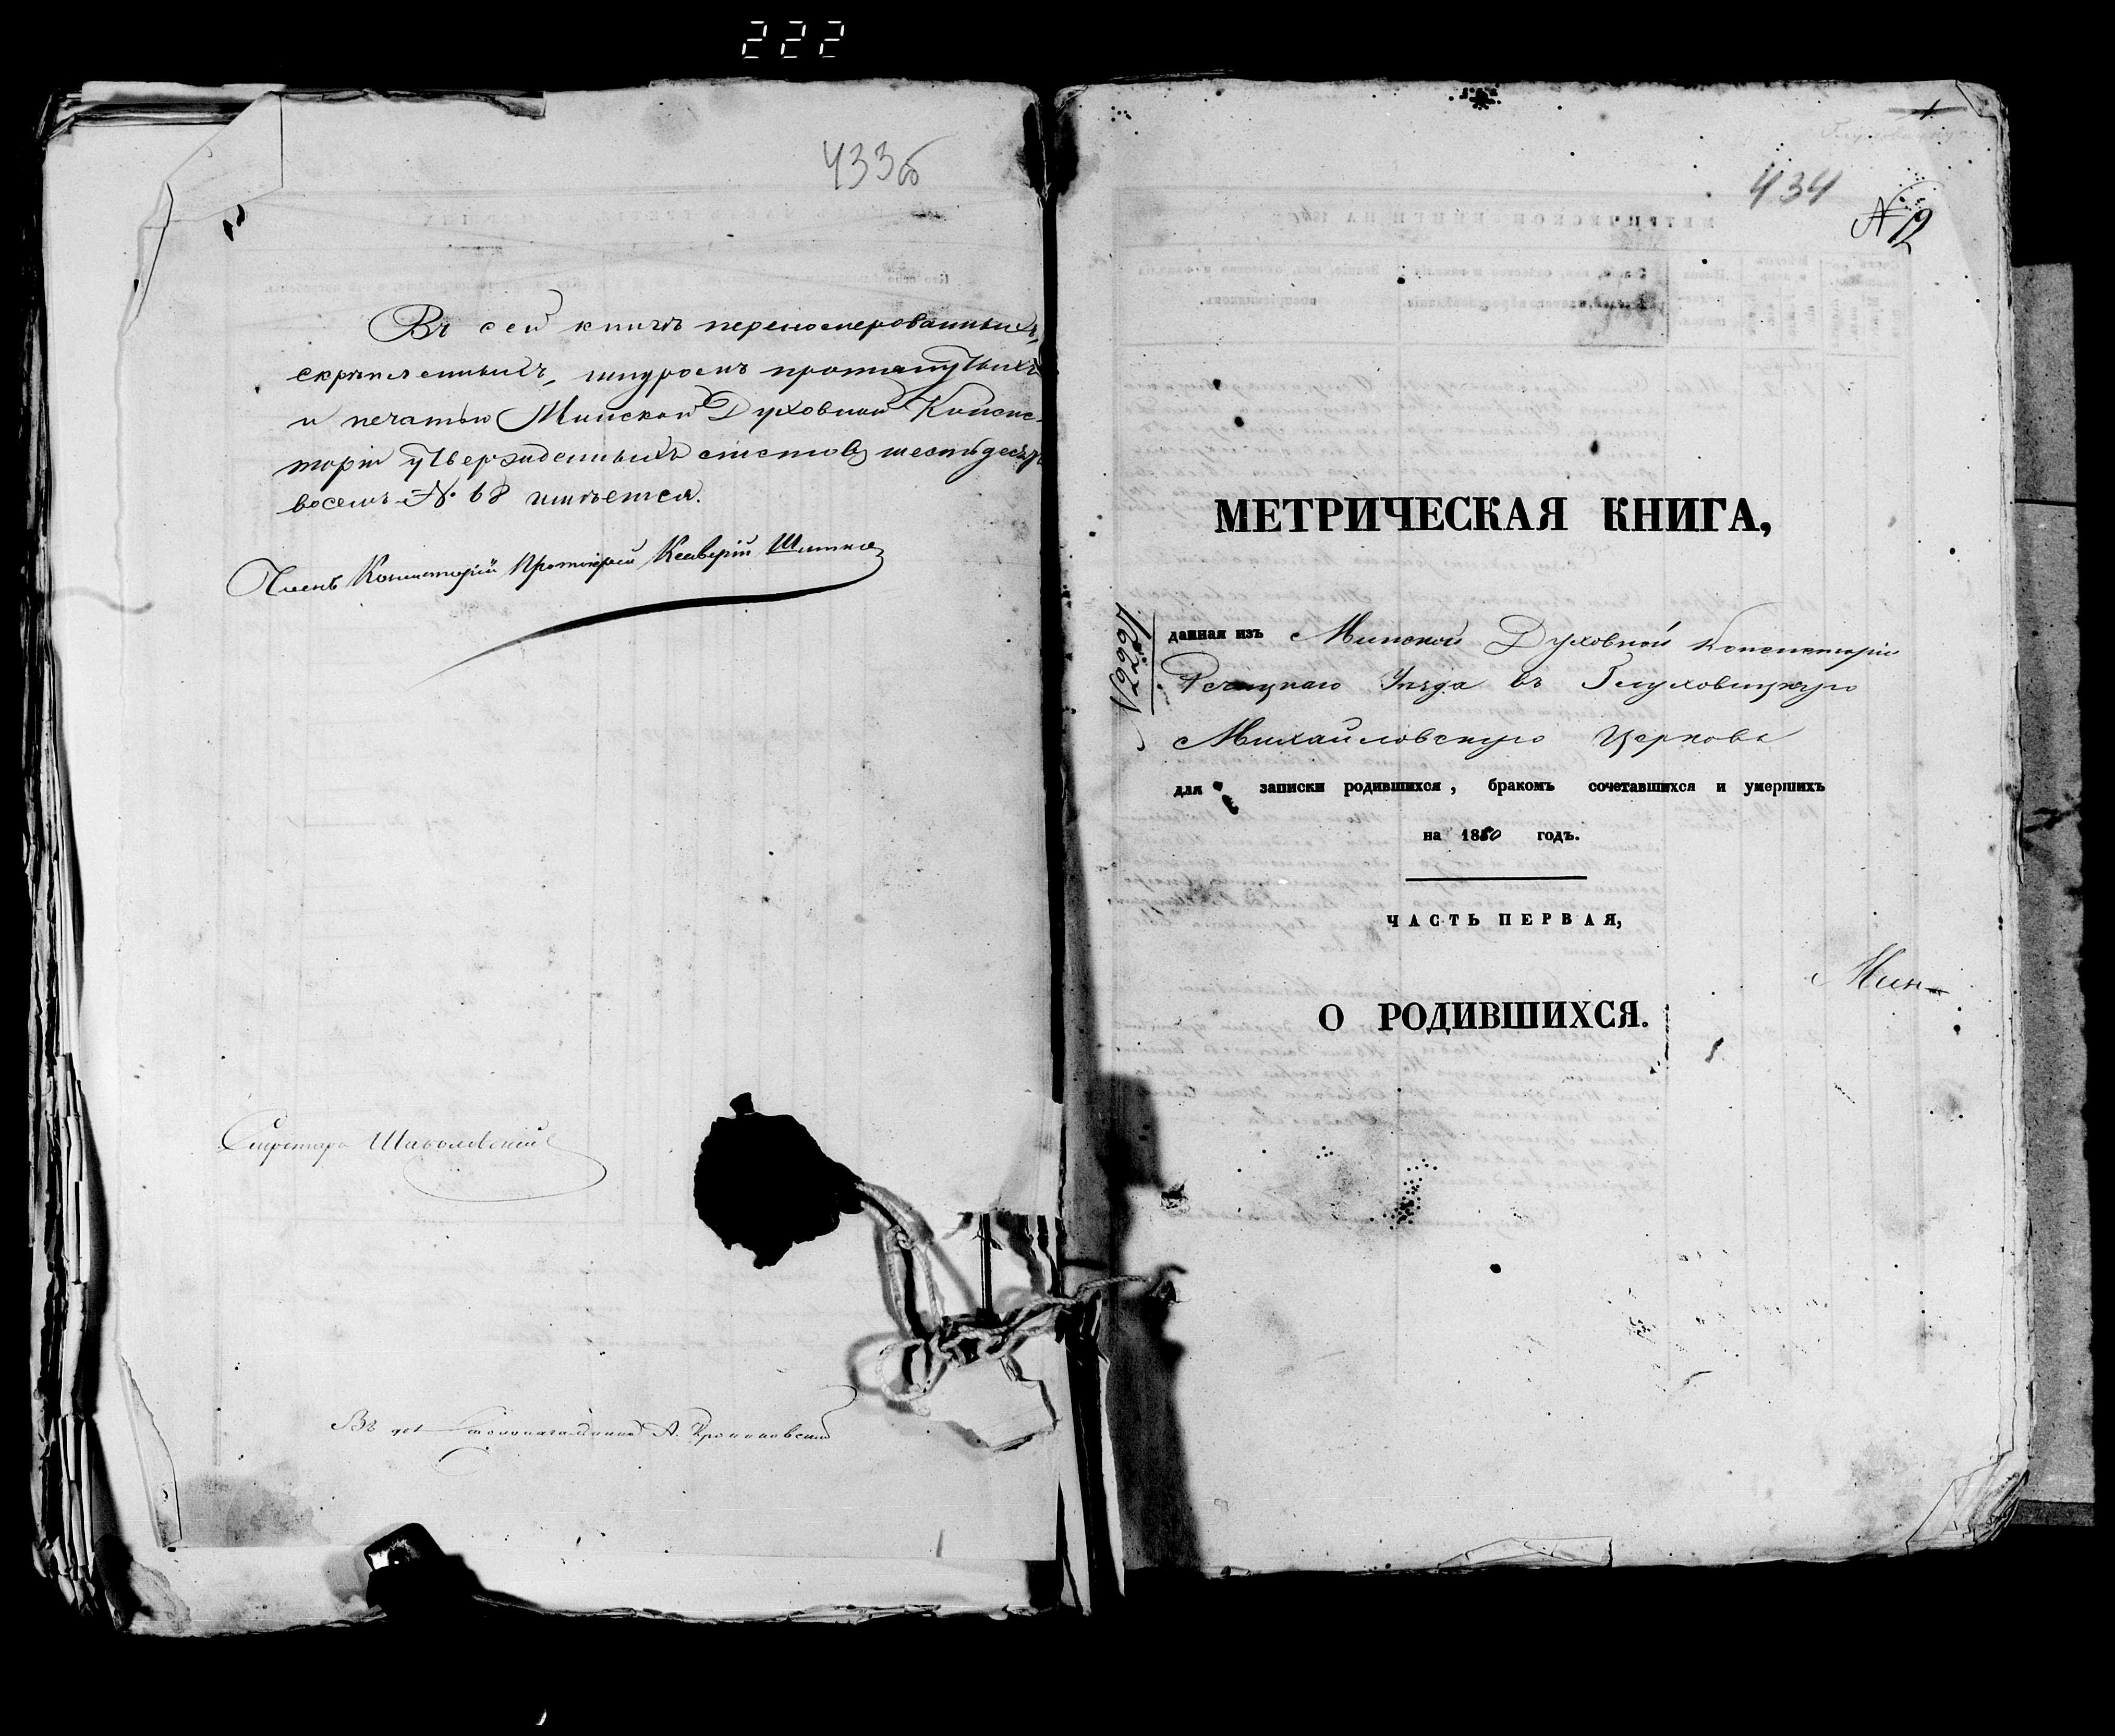 222
433об
Въ сей книгѣ перенумерованныхъ,
скрѣпленныхъ, шнуромъ протянутыхъ
и печатью Минской Духовной Консис-
торіи утвержденныхъ листовъ шестьдесятъ
восемь № 68 имѣется.
Членъ Консисторіи Протоіерей Ксаверій
Секретарь
Въ дол Столоначальника А.
434
№ 12
МЕТРИЧЕСКАЯ КНИГА,
данная изъ Минской Духовной Консисторіи
Речицкаго Уѣзда въ Глуховицкую
Михайловскую Церковь
для записки родившихся, бракомъ сочетавшихся и умершихъ
на 1850 годъ.
ЧАСТЬ ПЕРВАЯ,
Мин-
О РОДИВШИХСЯ.